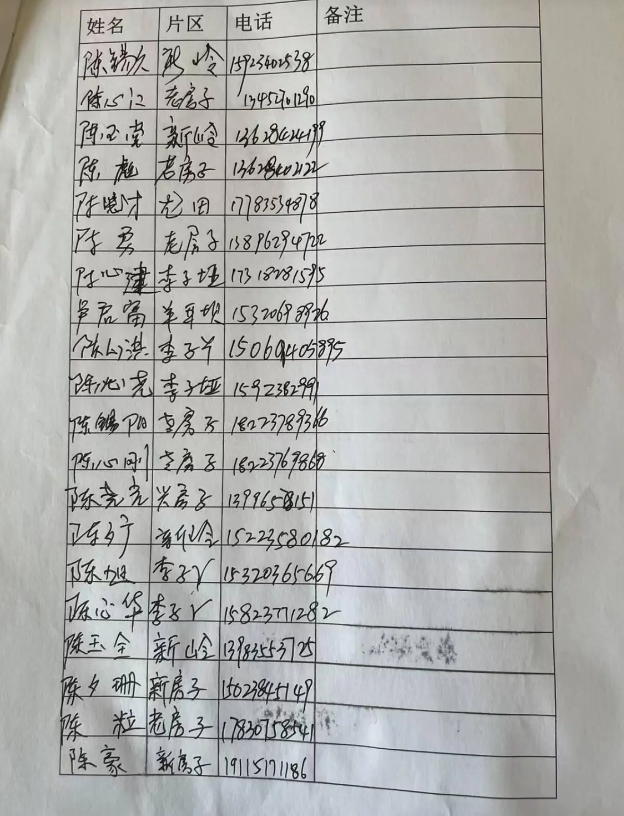 姓名 片区 电话 备注
陈锡久 新岭 15923402538
陈心江 老房子 13452701290
陈玉棠 新岭 13628424199
陈彪 老房子 13628402122
陈晓才 龙田 17783534878
陈勇 老房子 13896294722
陈心建 李子垭 17318281595
君富 羊耳坝 15320698926
李子 15069405895
陈光尧 李子垭 1592382991
陈锡阳 老房子 18223789366
陈心刚 老房子 18223769868
陈尧亮 兴房子 13996578151
陈 新岭 15223580182
陈旭 李子 15320365669
陈心华 李子 15823771282
陈玉全 新岭 13983553725
陈夕珊 新房子 15023845149
陈粒 老房子 17830758541
陈豪 新房子 19115171186